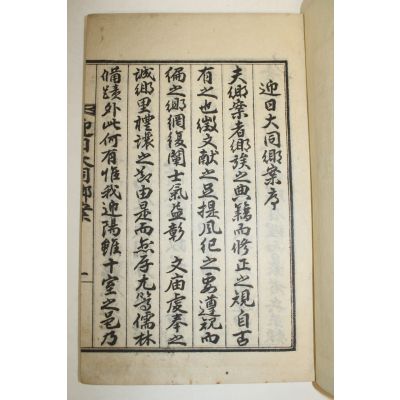 迎日大同鄉案序
夫鄉案者鄉族之典籍而修正之規自古
有之也徵文献之足提風紀之要遵規而
偏之鄉綱復闡士氣益彰 文庙虔奉之
誠鄉里禮讓之
由是而
存
儒林
備蹟外此何有惟我迎陽雖十室之邑乃
迎日大同鄉案
一